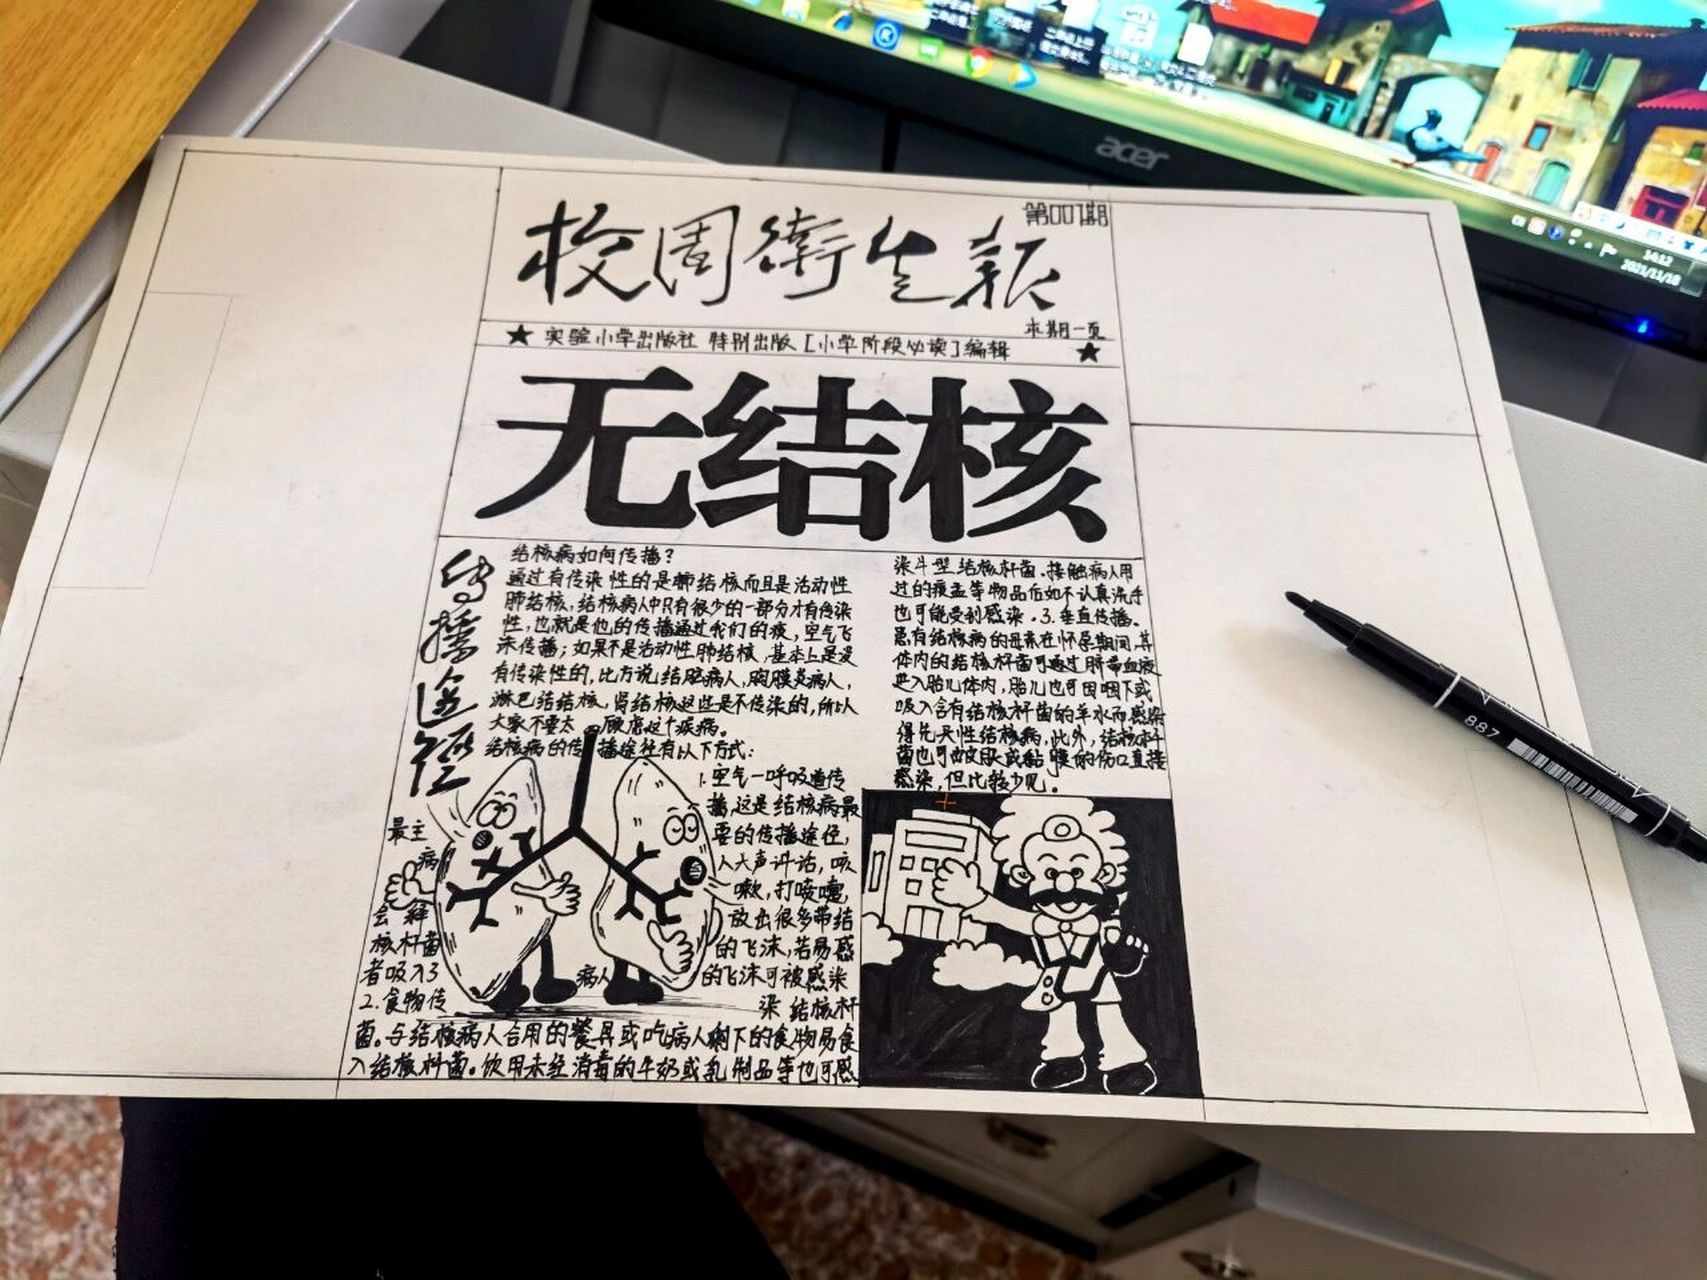 第001期
校园衛生报
本期一页
★ 实验小学出版社 特别出版 [小学阶段必读] 编辑 ★
无结核
传播途径
结核病如何传播?
通过有传染性的是肺结核而且是活动性
肺结核,结核病人中只有很少的一部分才有传染
性,也就是他的传播通过我们的痰,空气飞
沫传播;如果不是活动性肺结核,基本上是没
有传染性的,比方说结脑病人,胸膜炎病人,
淋巴结结核,肾结核这些是不传染的,所以
大家不要太 顾虑这个疾病。
结核病的传 播途径有以下方式:
1.空气一呼吸道传
播,这是结核病最
最主 要的传播途径,
病 人大声讲话,咳
嗽,打喷嚏,
会释 放出很多带结
核杆菌 的飞沫,若易感
者吸入了 病人 的飞沫可被感染
2.食物传 染 结核杆
菌。与结核病人合用的餐具或吃病人剩下的食物易食
入结核杆菌。饮用未经消毒的牛奶或乳制品等也可感
染斗型结核杆菌.接触病人用
过的痰盂等物品后如不认真洗手
也可能受到感染.3.垂直传播。
患有结核病的母亲在怀孕期间,其
体内的结核杆菌可通过脐带血液
进入胎儿体内,胎儿也可因咽下或
吸入含有结核杆菌的羊水而感染
得先天性结核病,此外,结核杆
菌也可由皮肤或黏膜的伤口直接
感染,但比较少见。
acer
14:12
2021/11/18
887